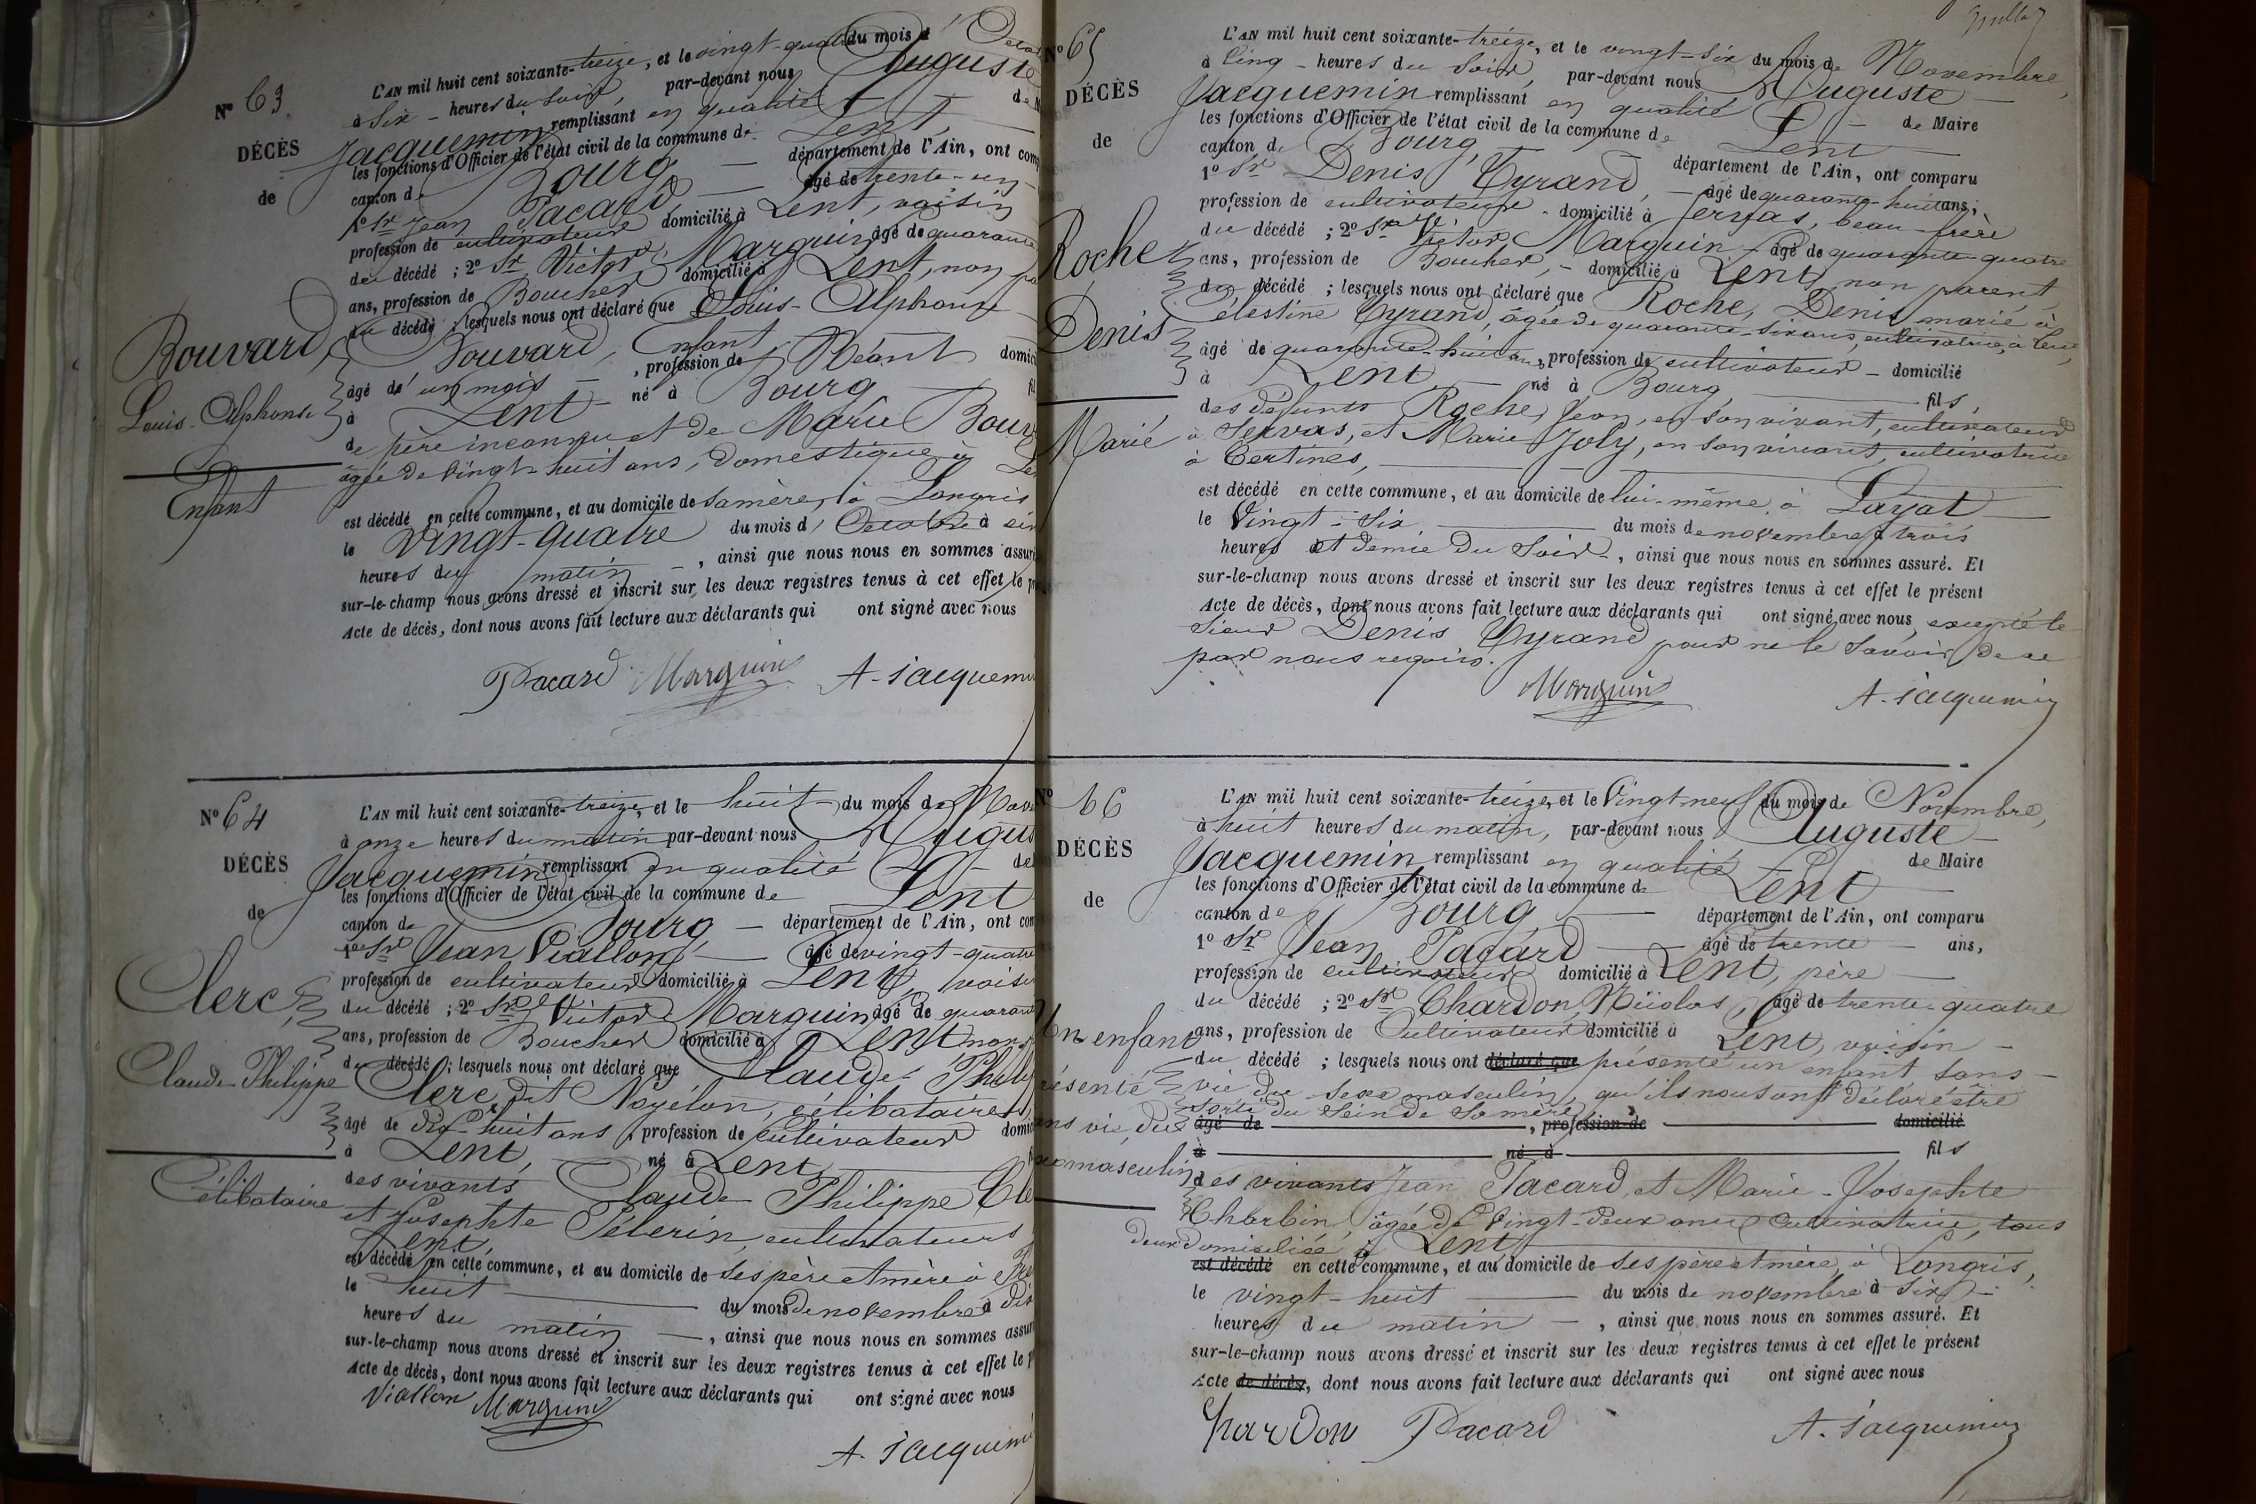 N° 63
DÉCÈS
de
Bouvard,
Louis-Alphonse
Enfant
L'AN mil huit cent soixante-treize, et le vingt-quatre du mois d'Octo
à six heures du soir, par-devant nous Auguste
Jacquemin remplissant en qualité de M
les fonctions d'Officier de l'état civil de la commune de Lent
canton de Bourg département de l'Ain, ont comp
1° Sr Jean Pacard, âgé de trente-un
profession de cultivateur domicilié à Lent, voisin
du décédé ; 2° Sr Victor Marguin âgé de quarante
ans, profession de Boucher domicilié à Lent, non pa
du décédé ; lesquels nous ont déclaré que Louis-Alphonse
Bouvard, Enfant
âgé d'un mois , profession de Néant domici
à Lent né à Bourg fil
de père inconnu et de Marie Bouv
âgée de vingt-huit ans, domestique à Le
est décédé en cette commune, et au domicile de sa mère, à Longris
le vingt-quatre du mois d'Octobre à six
heures du matin , ainsi que nous nous en sommes assuré
sur-le-champ nous avons dressé et inscrit sur les deux registres tenus à cet effet le pr
Acte de décès, dont nous avons fait lecture aux déclarants qui ont signé avec nous
Pacard Marguin A. Jacquemin
N° 64
DÉCÈS
de
Clerc,
Claude-Philippe
Célibataire
L'AN mil huit cent soixante-treize, et le huit du mois de Nov
à onze heures du matin par-devant nous Augus
Jacquemin remplissant en qualité de
les fonctions d'Officier de l'état civil de la commune de Lent
canton de Bourg département de l'Ain, ont com
1° Sr Jean Viallon âgé de vingt-quatre
profession de cultivateur domicilié à Lent, voisin
du décédé ; 2° Sr Victor Marguin âgé de quaran
ans, profession de Boucher domicilié à Lent non
du décédé ; lesquels nous ont déclaré que Claude-Phili
Clerc, dit Noyélon, célibataire,
âgé de dix-huit ans, profession de cultivateur domici
à Lent, né à Lent
des vivants Claude Philippe Cle
et Josephte Pélerin, cultivateurs
Lent,
est décédé en cette commune, et au domicile de ses père et mère à
le huit du mois de novembre à dix
heures du matin , ainsi que nous nous en sommes assuré
sur-le-champ nous avons dressé et inscrit sur les deux registres tenus à cet effet le p
Acte de décès, dont nous avons fait lecture aux déclarants qui ont signé avec nous
Viallon Marguin
A. Jacquemin
N° 65
DÉCÈS
de
Roche
Denis
Marié
L'AN mil huit cent soixante-treize, et le vingt-six du mois de Novembre,
à Cinq heures du soir, par-devant nous Auguste
Jacquemin remplissant en qualité de Maire
les fonctions d'Officier de l'état civil de la commune de Lent
canton de Bourg, département de l'Ain, ont comparu
1° Sr Denis Tyrand, âgé de quarante-huit ans,
profession de cultivateur domicilié à Servas, beau-frère
du décédé ; 2° Sr Victor Marguin âgé de quarante-quatre
ans, profession de Boucher, domicilié à Lent, non parent
du décédé ; lesquels nous ont déclaré que Roche, Denis marié à
Célestine Tyrand, âgée de quarante-six ans, cultivatrice, à Lent,
âgé de quarante-huit ans, profession de cultivateur domicilié
à Lent né à Bourg fils,
des défunts Roche, Jean, en son vivant, cultivateur
à Servas, et Marie Joly, en son vivant, cultivatrice
à Certines,
est décédé en cette commune, et au domicile de lui-même, à Layat
le Vingt-six du mois de novembre à trois
heures et demie du soir , ainsi que nous nous en sommes assuré. Et
sur-le-champ nous avons dressé et inscrit sur les deux registres tenus à cet effet le présent
Acte de décès, dont nous avons fait lecture aux déclarants qui ont signé avec nous, excepté le
sieur Denis Tyrand pour ne le savoir de ce
par nous requis.
Marguin A. Jacquemin
N° 66
DÉCÈS
de
Un enfant
résenté
ans vie, du
sexe masculin
L'AN mil huit cent soixante-treize, et le Vingt neuf du mois de Novembre,
à huit heures du matin, par-devant nous Auguste
Jacquemin remplissant en qualité de Maire
les fonctions d'Officier de l'état civil de la commune de Lent
canton de Bourg département de l'Ain, ont comparu
1° Sr Jean Pacard âgé de trente ans,
profession de cultivateur domicilié à Lent, père
du décédé ; 2° Sr Chardon, Nicolas, âgé de trente-quatre
ans, profession de Cultivateur domicilié à Lent, voisin
du décédé ; lesquels nous ont déclaré que présenté un enfant sans
vie du sexe masculin, qu'ils nous ont déclaré être
sorti du sein de sa mère,
âgé de , profession de domicilié
à né à fils
des vivants Jean Pacard, et Marie-Josephte
Cherbin, âgée de vingt-deux ans, Cultivatrice, tous
deux domiciliés à Lent,
est décédé en cette commune, et au domicile de ses père et mère, à Longris,
le vingt-huit du mois de novembre à six
heures du matin , ainsi que nous nous en sommes assuré. Et
sur-le-champ nous avons dressé et inscrit sur les deux registres tenus à cet effet le présent
Acte de décès, dont nous avons fait lecture aux déclarants qui ont signé avec nous
Chardon Pacard A. Jacquemin